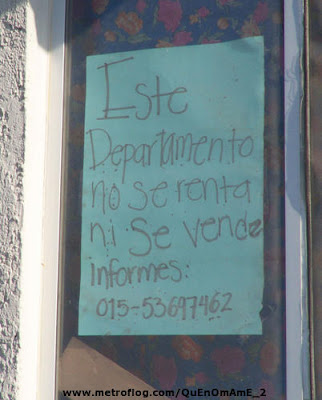 Este
Departamento
no se renta
ni Se vende
informes:
015-53697462
www.metroflog.com/QuEnOmAmE_2